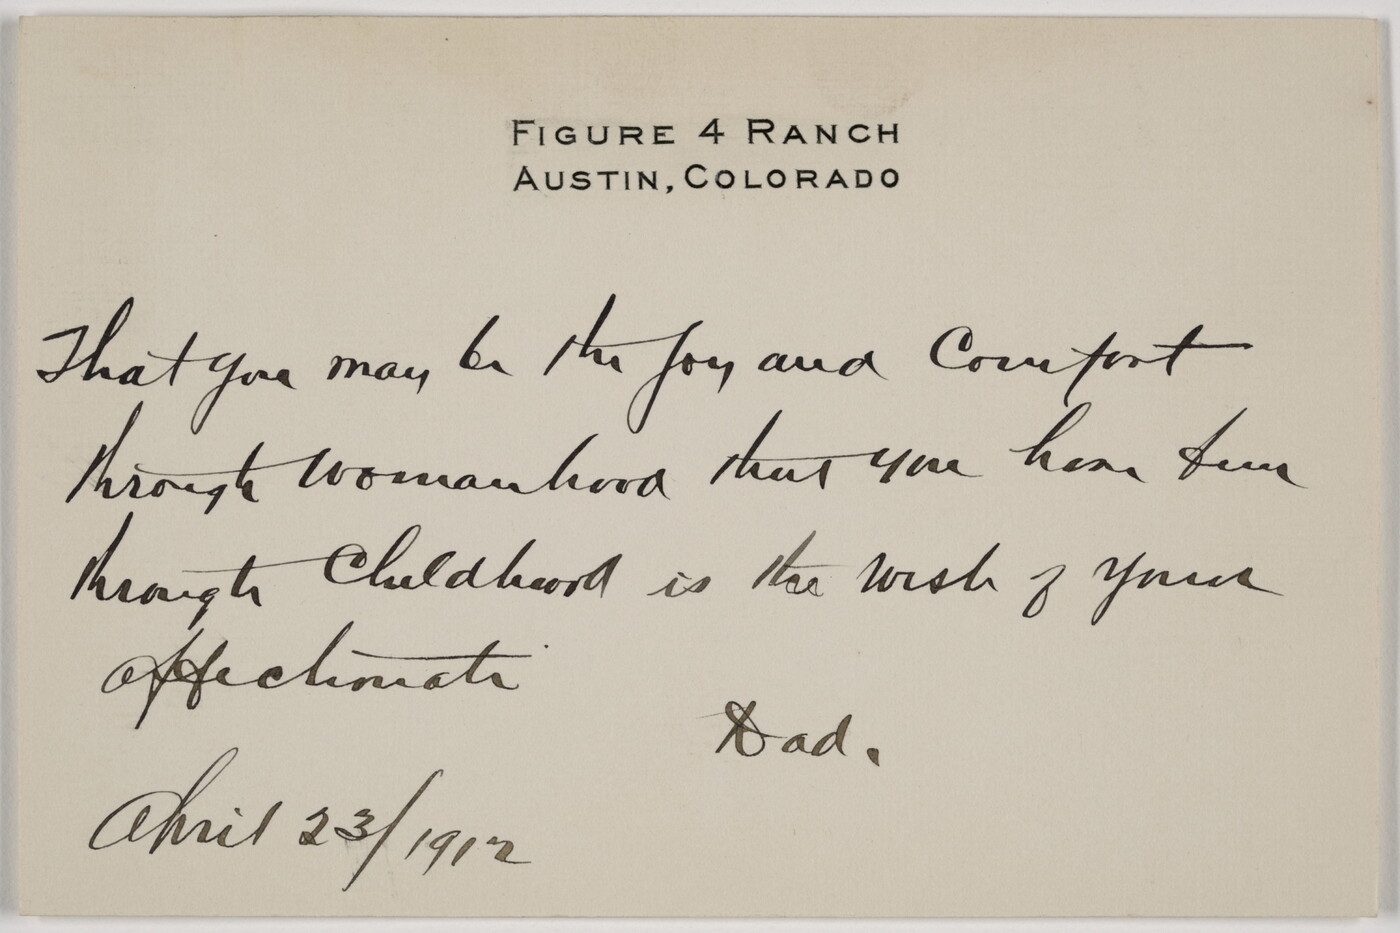 FIGURE 4 RANCH
AUSTIN, COLORADO
That you may be the joy and Comfort
through womanhood that you have been
through Childhood is the wish of your
affectionate
Dad.
April 23/1912